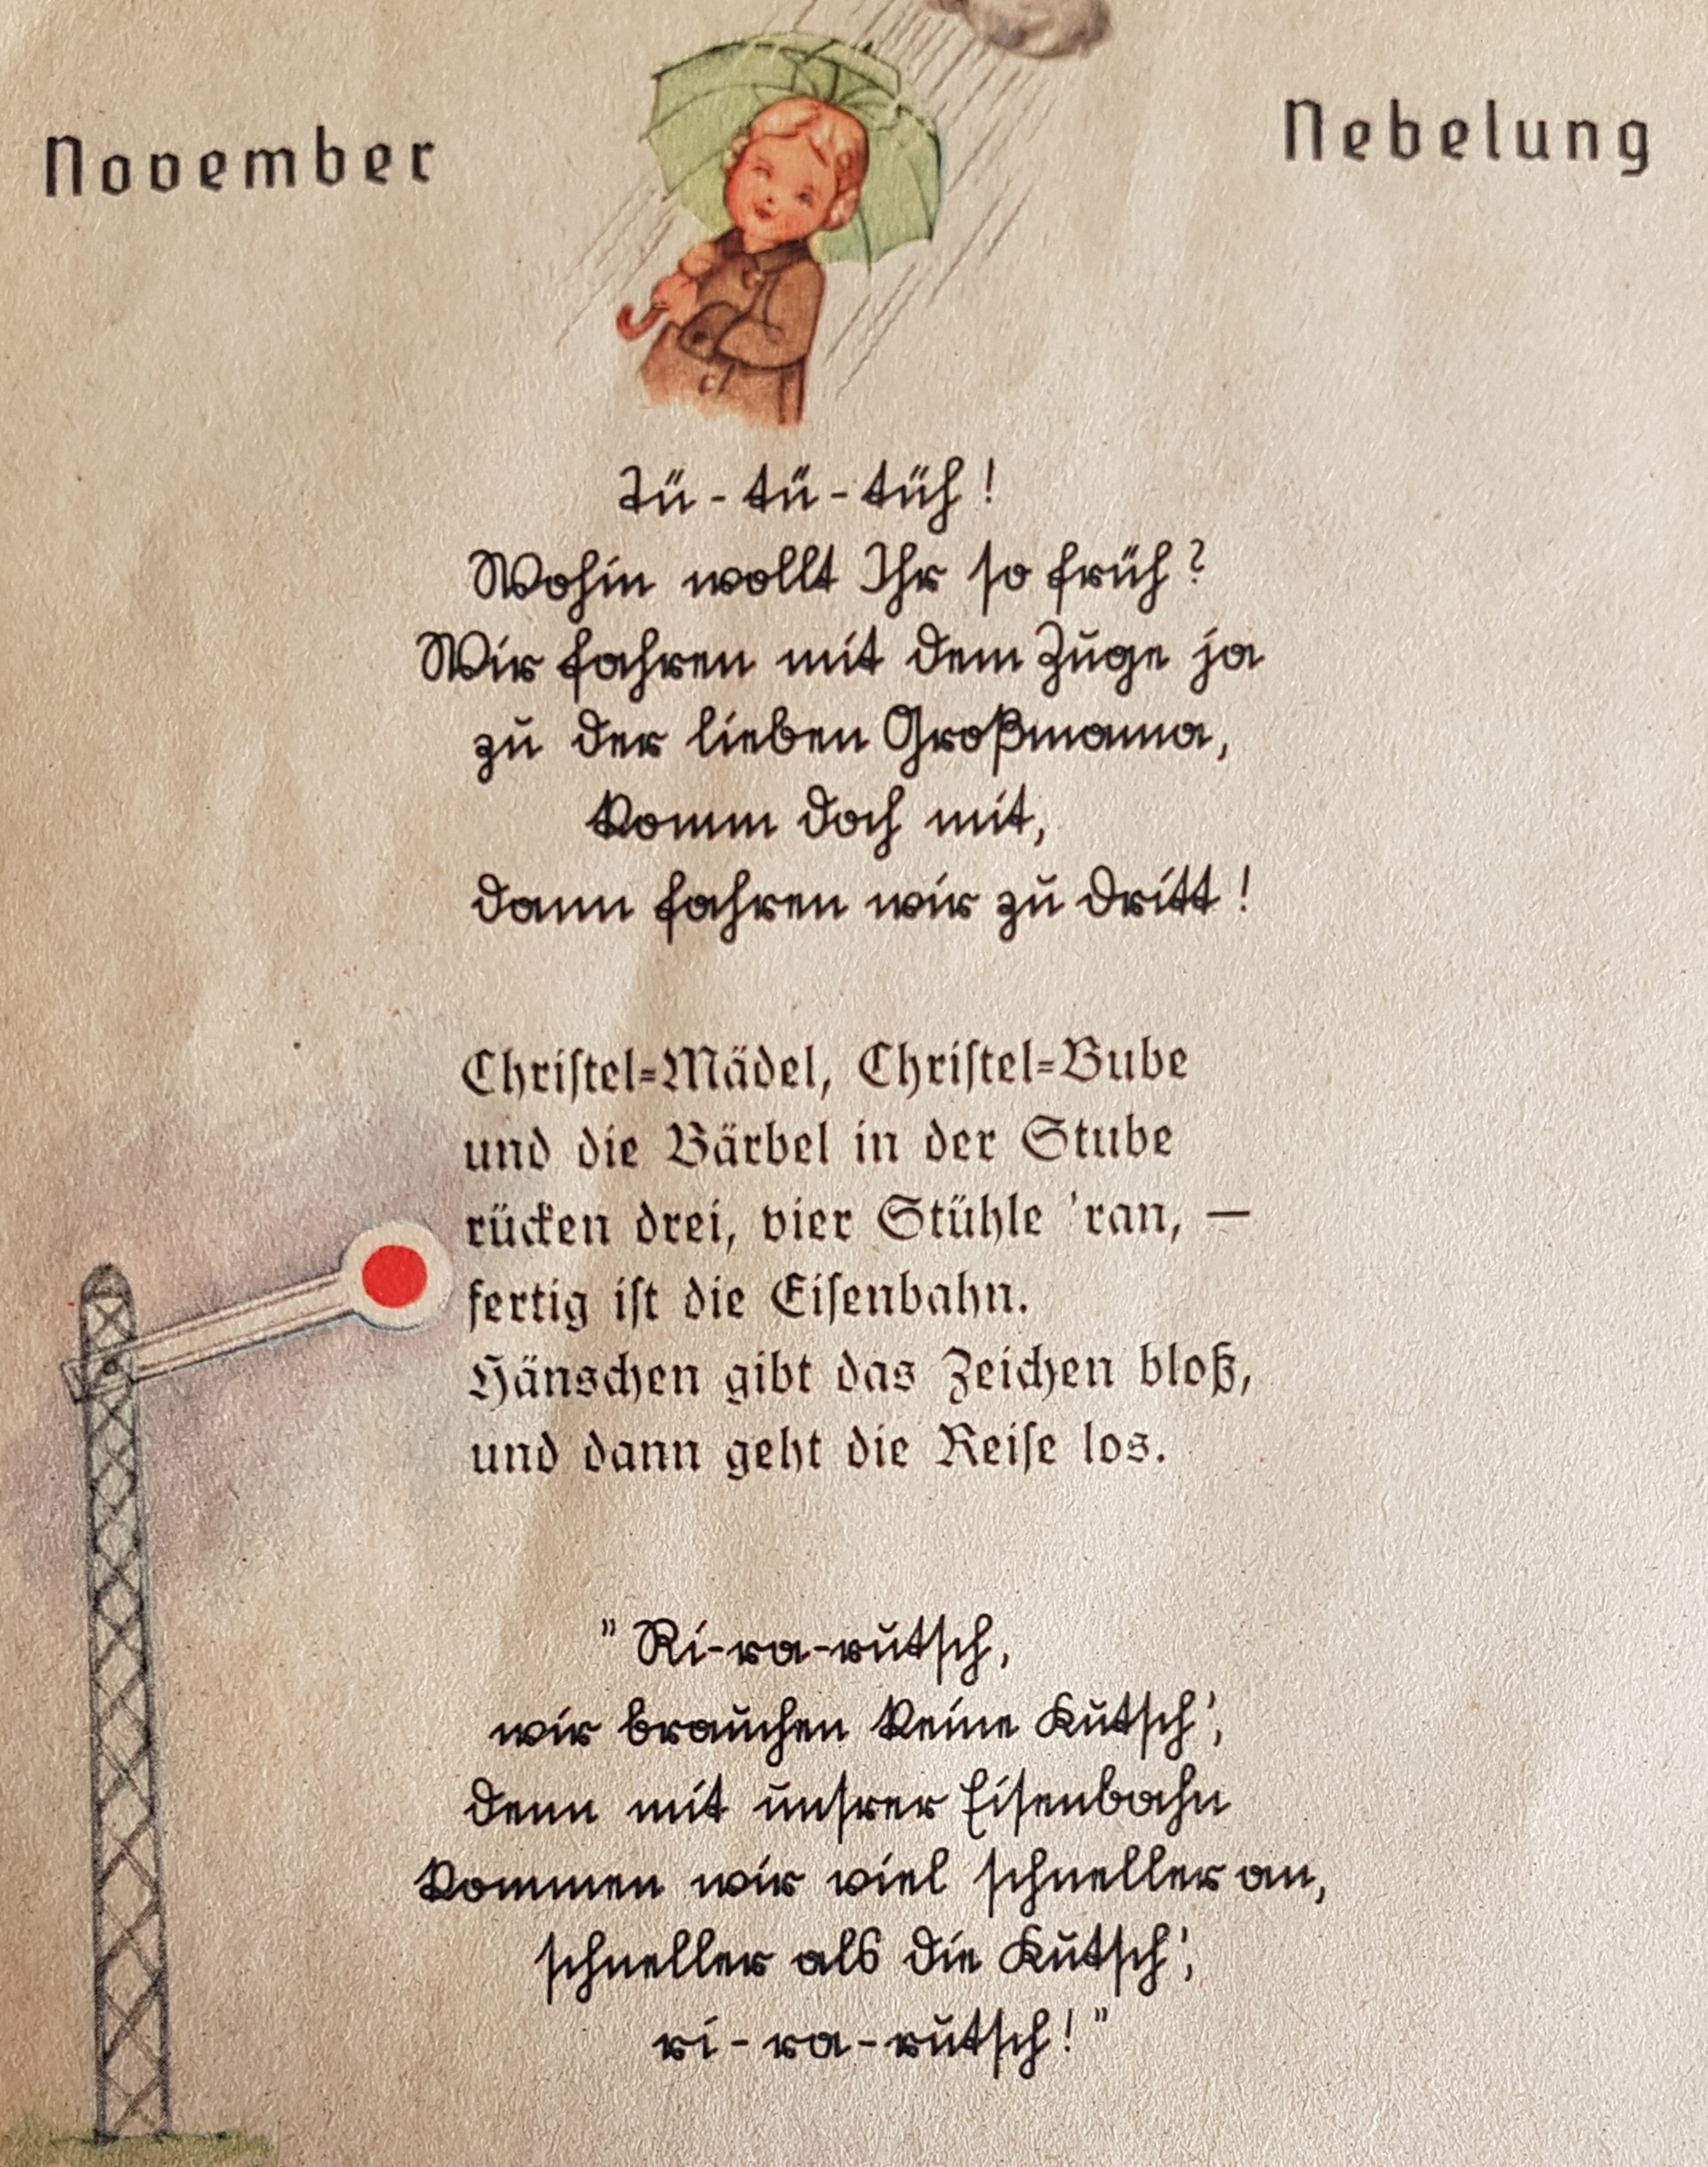 November
Nebelung
Tü-tü-tüh!
Wohin wollt Ihr so früh?
Wir fahren mit dem Zuge ja
zu der lieben Großmama,
komm doch mit,
dann fahren wir zu dritt!
Christel-Mädel, Christel-Bube
und die Bärbel in der Stube
rücken drei, vier Stühle 'ran, —
fertig ist die Eisenbahn.
Hänschen gibt das Zeichen bloß,
und dann geht die Reise los.
"Ri-ra-rutsch,
wir brauchen keine Kutsch',
denn mit unsrer Eisenbahn
kommen wir viel schneller an,
schneller als die Kutsch',
ri-ra-rutsch!"